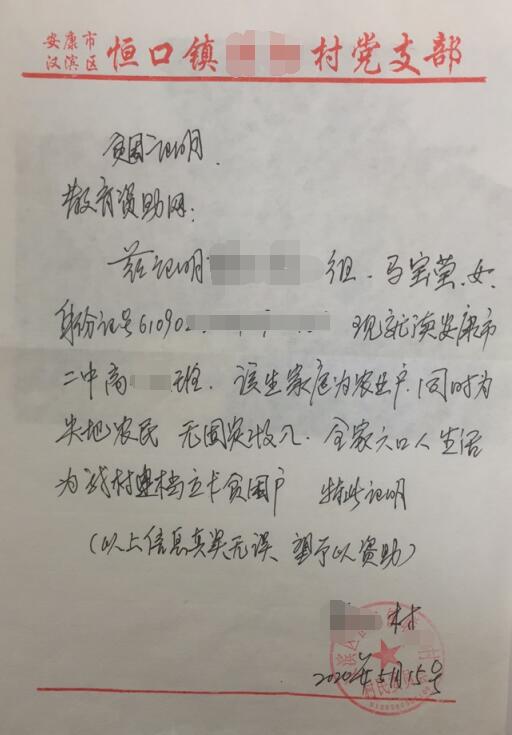 安康市
汉滨区 恒口镇 村党支部
贫困证明
教育资助网：
兹证明 组、马宝莹、女、
身份证号61090 现就读安康市
二中高 班、该生家庭为农业户、同时为
失地农民 无固定收入、全家六口人生活
为我村建档立卡贫困户 特此证明
（以上信息真实无误、望予以资助）
村
2020年5月15号